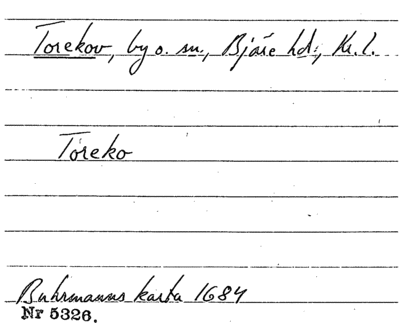 Torekov, by o. sn., Bjäre hd., Kr. l.
Toreko
Buhrmanns karta 1684
Nr 5326.